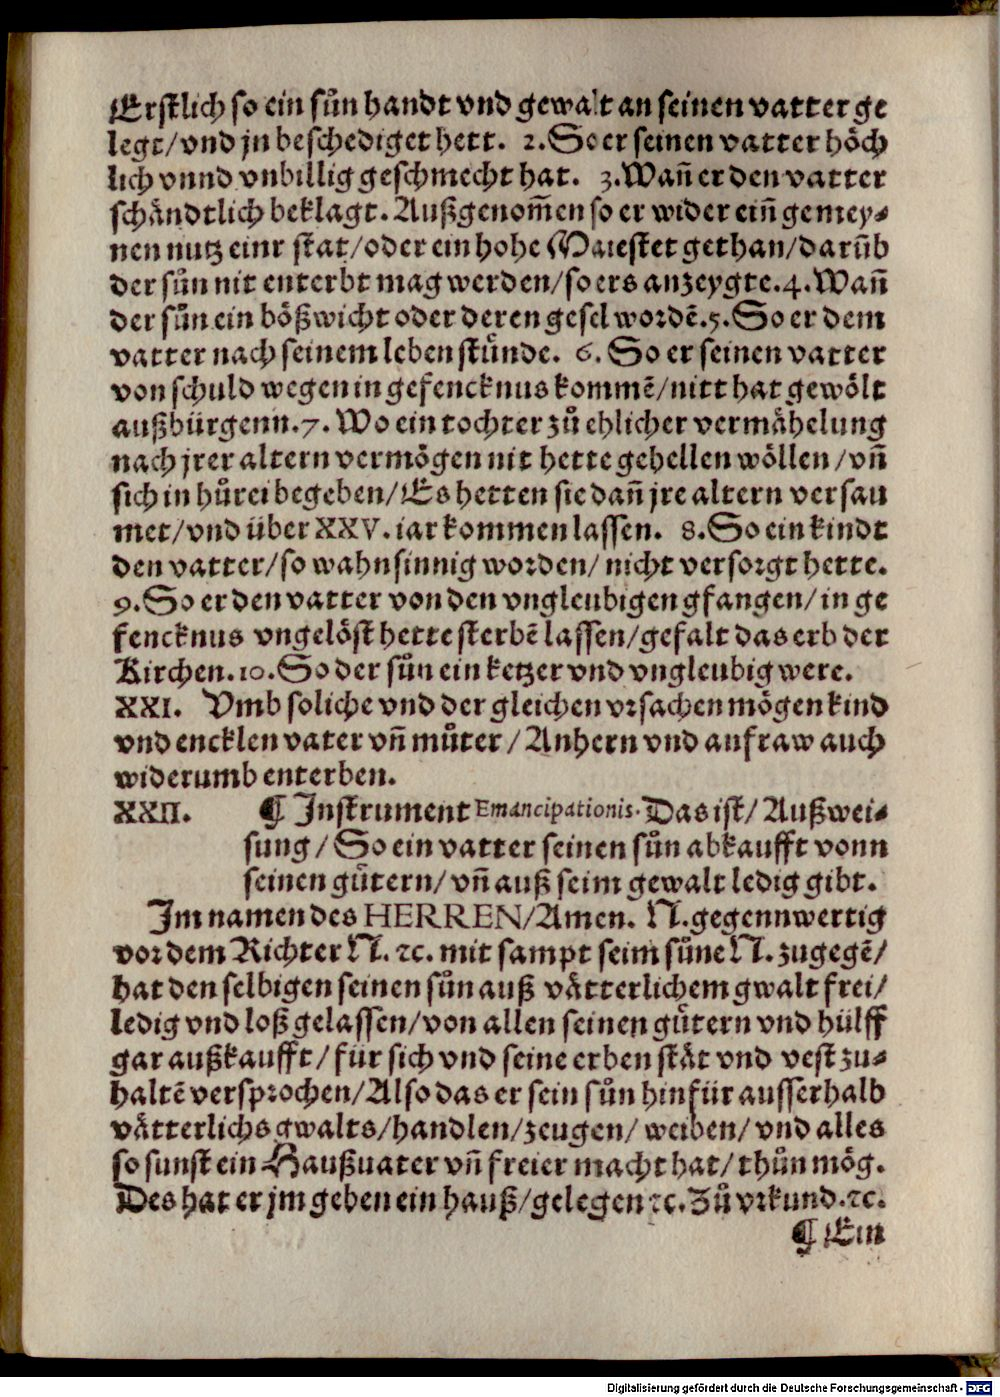 Erstlich so ein sůn handt vnd gewalt an seinen vatter ge
legt/vnd jn beschediget hett. 2.So er seinen vatter höch
lich vnnd vnbillig geschmecht hat. 3.Wañ er den vatter
schändtlich beklagt. Außgenom̃en so er wider eiñ gemey⸗
nen nutz einr stat/oder ein hohe Maiestet gethan/darũb
der sůn nit enterbt mag werden/so ers anzeygte.4.Wañ
der sůn ein bößwicht oder deren gesel wordẽ.5.So er dem
vatter nach seinem leben stünde. 6. So er seinen vatter
von schuld wegen in gefencknus kommẽ/nitt hat gewölt
außbürgenn.7. Wo ein tochter zů ehlicher vermähelung
nach jrer altern vermögen nit hette gehellen wöllen/vñ
sich in hůrei begeben/Es hetten sie dañ jre altern versau
met/vnd über XXV. iar kommen lassen. 8.So ein kindt
den vatter/so wahnsinnig worden/ nicht versorgt hette.
9.So er den vatter von den vngleubigen gfangen/in ge
fencknus vngelöst hette sterbẽ lassen/gefalt das erb der
Kirchen.10.So der sůn ein ketzer vnd vngleubig were.
XXI. Vmb soliche vnd der gleichen vrsachen mögen kind
vnd encklen vater vñ můter/Anhern vnd anfraw auch
widerumb enterben.
XXII. ¶ Instrument Emancipationis. Das ist/Außwei⸗
sung/So ein vatter seinen sůn abkaufft vonn
seinen gütern/vñ auß seim gewalt ledig gibt.
Im namen des HERREN/Amen. N.gegennwertig
vor dem Richter N. ꝛc. mit sampt seim süne N. zugegẽ/
hat den selbigen seinen sůn auß vätterlichem gwalt frei/
ledig vnd loß gelassen/von allen seinen gütern vnd hülff
gar außkaufft/für sich vnd seine erben stät vnd vest zu⸗
haltẽ versprochen/Also das er sein sůn hinfür ausserhalb
vätterlichs gwalts/handlen/zeugen/ weiben/ vnd alles
so sunst ein Haußuater vñ freier macht hat/thůn mög.
Des hat er jm geben ein hauß/gelegen ꝛc. Zů vrkund.ꝛc.
¶ Ein
Digitalisierung gefördert durch die Deutsche Forschungsgemeinschaft - DFG